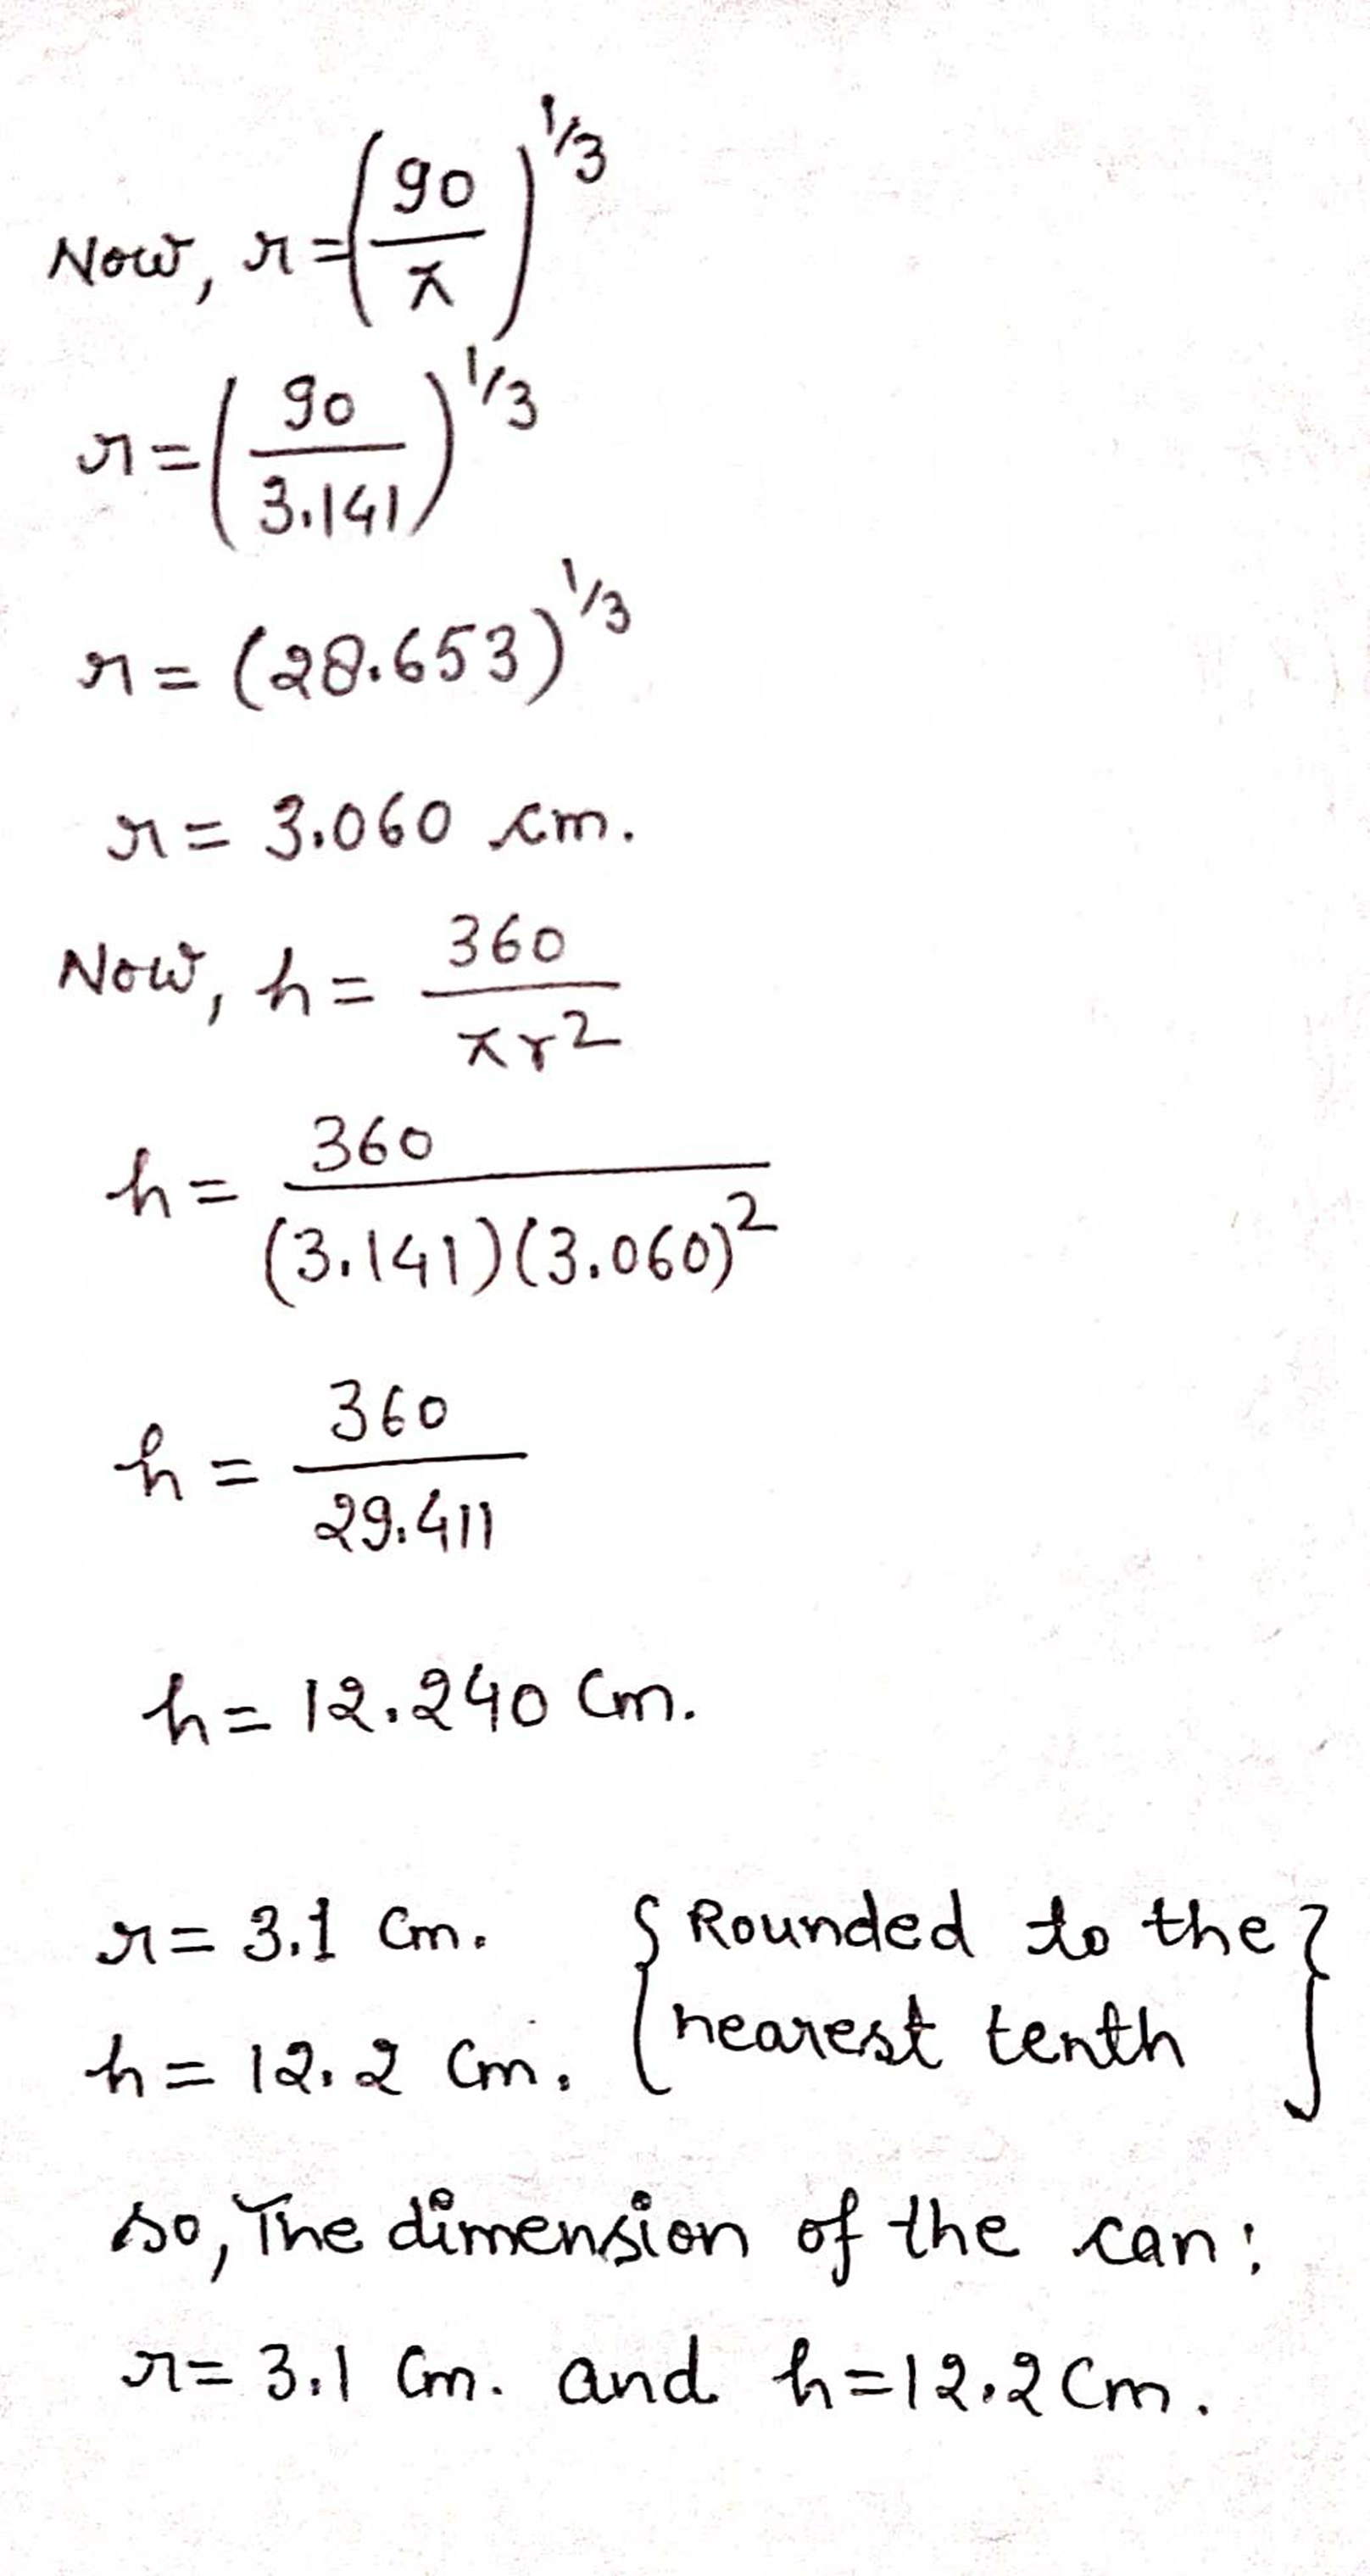 Now, r = (90/π)^1/3
r = (90/3.141)^1/3
r = (28.653)^1/3
r = 3.060 cm.
Now, h = 360/πr²
h = 360/(3.141)(3.060)²
h = 360/29.411
h = 12.240 cm.
r = 3.1 cm. { Rounded to the
h = 12.2 cm. nearest tenth }
so, The dimension of the can:
r = 3.1 cm. and h = 12.2 cm.